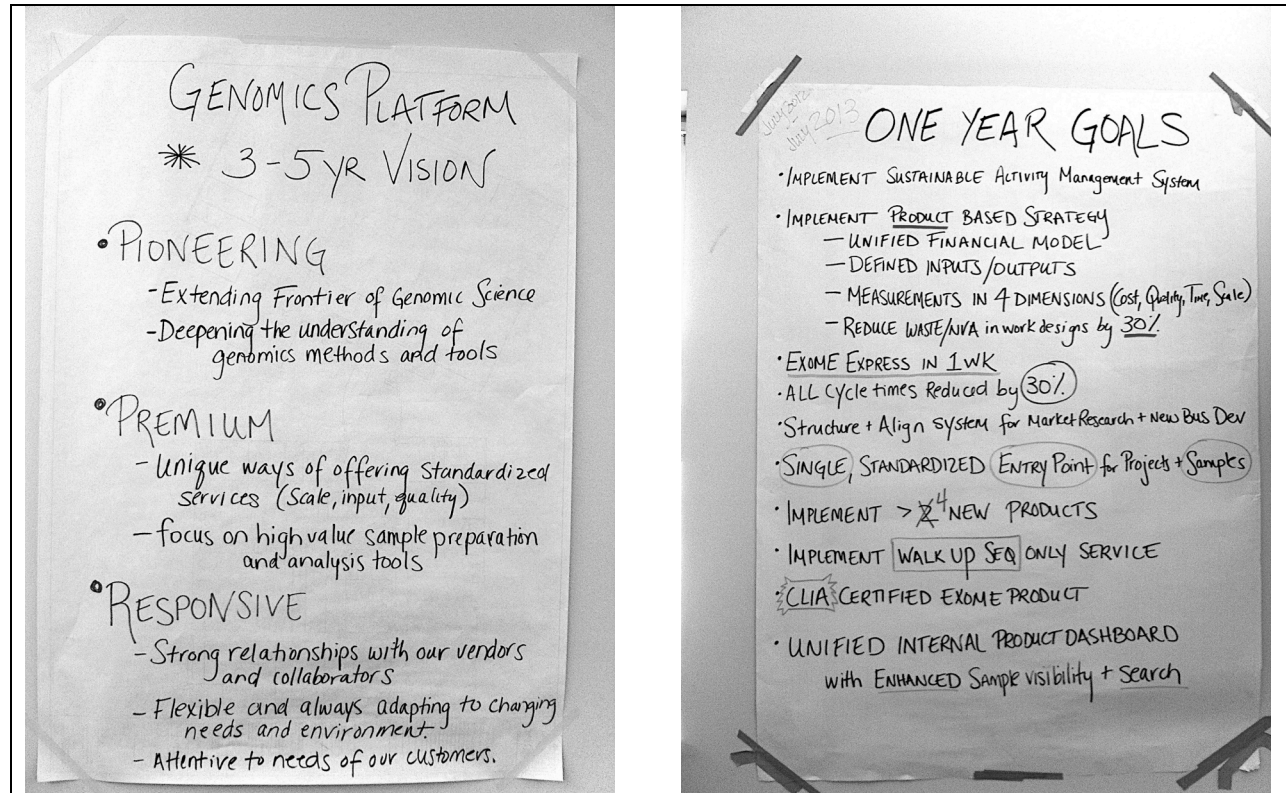 GENOMICS PLATFORM
* 3-5 YR VISION
• PIONEERING
- Extending Frontier of Genomic Science
- Deepening the understanding of
genomics methods and tools
• PREMIUM
- Unique ways of offering standardized
services (Scale, input, quality)
- focus on high value sample preparation
and analysis tools
• RESPONSIVE
- Strong relationships with our vendors
and collaborators
- Flexible and always adapting to changing
needs and environment.
- Attentive to needs of our customers.
July 2012
July 2013
ONE YEAR GOALS
• IMPLEMENT SUSTAINABLE Activity Management System
• IMPLEMENT PRODUCT BASED STRATEGY
- UNIFIED FINANCIAL MODEL
- DEFINED INPUTS/OUTPUTS
- MEASUREMENTS IN 4 DIMENSIONS (Cost, Quality, Time, Scale)
- REDUCE WASTE/NVA in work designs by 30%
• EXOME EXPRESS IN 1WK
• ALL Cycle times Reduced by 30%
• Structure + Align System for Market Research + New Bus Dev
• SINGLE, STANDARDIZED ENTRY POINT for Projects + Samples
• IMPLEMENT > 4 NEW PRODUCTS
• IMPLEMENT WALK UP SEQ ONLY SERVICE
• CLIA CERTIFIED EXOME PRODUCT
• UNIFIED INTERNAL PRODUCT DASHBOARD
with ENHANCED Sample visibility + search